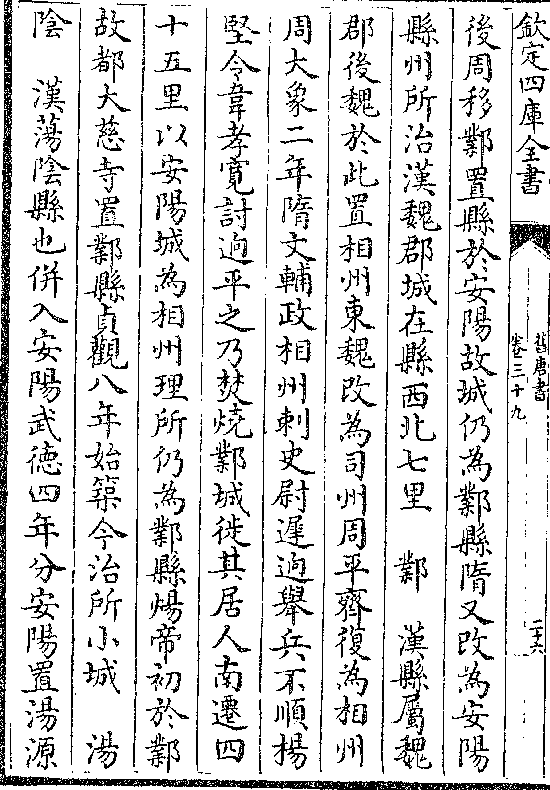 欽定四庫全書
舊唐書
卷三十九
二十六
後周移鄴置縣於安陽故城仍為鄴縣隋又改為安陽
縣州所治漢魏郡城在縣西北七里　鄴　漢縣屬魏
郡後魏於此置相州東魏改為司州周平齊復為相州
周大象二年隋文輔政相州刺史尉遲迥舉兵不順楊
堅令韋孝寬討迥平之乃焚燒鄴城徙其居人南遷四
十五里以安陽城為相州理所仍為鄴縣煬帝初於鄴
故都大慈寺置鄴縣貞觀八年始築今治所小城　湯
陰　漢蕩陰縣也併入安陽武德四年分安陽置湯源